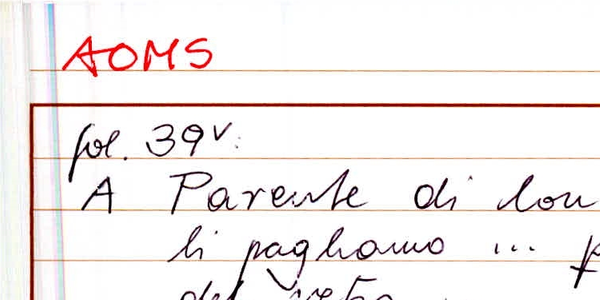 AOMS
fol. 39v.
A Parente di Lon
li paghamo ... p
del